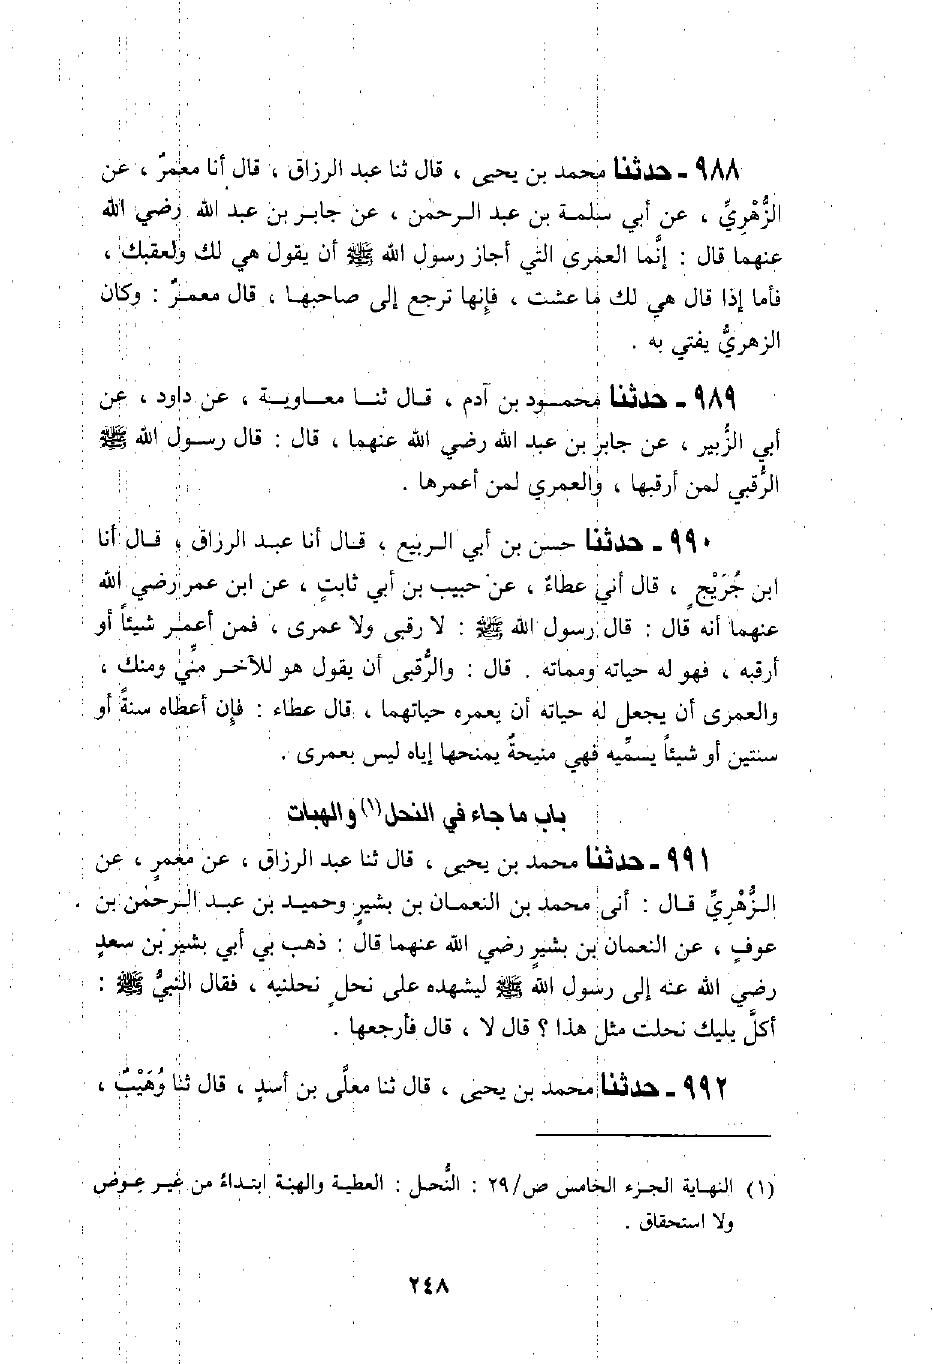 ٩٨٨ ـ حدثنا محمد بن يحيى ، قال ثنا عبد الرزاق ، قال أنا معمرٌ ، عن
الزُّهْرِيِّ ، عن أبي سلمة بن عبد الرحمٰن ، عن جابر بن عبد الله رضي الله
عنهما قال : إنَّما العمرى التي أجاز رسول الله ﷺ أن يقول هي لك ولعقبك ،
فأما إذا قال هي لك ما عشت ، فإنها ترجع إلى صاحبها ، قال معمرٌ : وكان
الزهريُّ يفتي به .
٩٨٩ ـ حدثنا محمود بن آدم ، قال ثنا معاوية ، عن داود ، عن
أبي الزُّبير ، عن جابر بن عبد الله رضي الله عنهما ، قال : قال رسول الله ﷺ
الرُّقبي لمن أرقبها ، والعمري لمن أعمرها .
٩٩٠ ـ حدثنا حسن بن أبي الربيع ، قال أنا عبد الرزاق ، قال أنا
ابن جُرَيْجٍ ، قال أني عطاءٌ ، عن حبيب بن أبي ثابتٍ ، عن ابن عمر رضي الله
عنهما أنه قال : قال رسول الله ﷺ : لا رقبى ولا عمرى ، فمن أعمر شيئاً أو
أرقبه ، فهو له حياته ومماته . قال : والرُّقبى أن يقول هو للآخر منِّي ومنك ،
والعمرى أن يجعل له حياته أن يعمره حياتهما ، قال عطاء : فإن أعطاه سنةً أو
سنتين أو شيئاً يسمِّيه فهي منيحةٌ يمنحها إياه ليس بعمرى .
باب ما جاء في النحل(١) والهبات
٩٩١ ـ حدثنا محمد بن يحيى ، قال ثنا عبد الرزاق ، عن معمرٍ ، عن
الزُّهْرِيِّ قال : أنى محمد بن النعمان بن بشيرٍ وحميد بن عبد الرحمٰن بن
عوفٍ ، عن النعمان بن بشيرٍ رضي الله عنهما قال : ذهب بي أبي بشير بن سعدٍ
رضي الله عنه إلى رسول الله ﷺ ليشهده على نحلٍ نحلنيه ، فقال النبيُّ ﷺ :
أكلَّ بليك نحلت مثل هذا ؟ قال لا ، قال فأرجعها .
٩٩٢ ـ حدثنا محمد بن يحيى ، قال ثنا معلَّى بن أسدٍ ، قال ثنا وُهَيْبٌ ،
(١) النهاية الجزء الخامس ص/٢٩ : النُّحل : العطية والهبة ابتداءً من غير عوض
ولا استحقاق .
٢٤٨